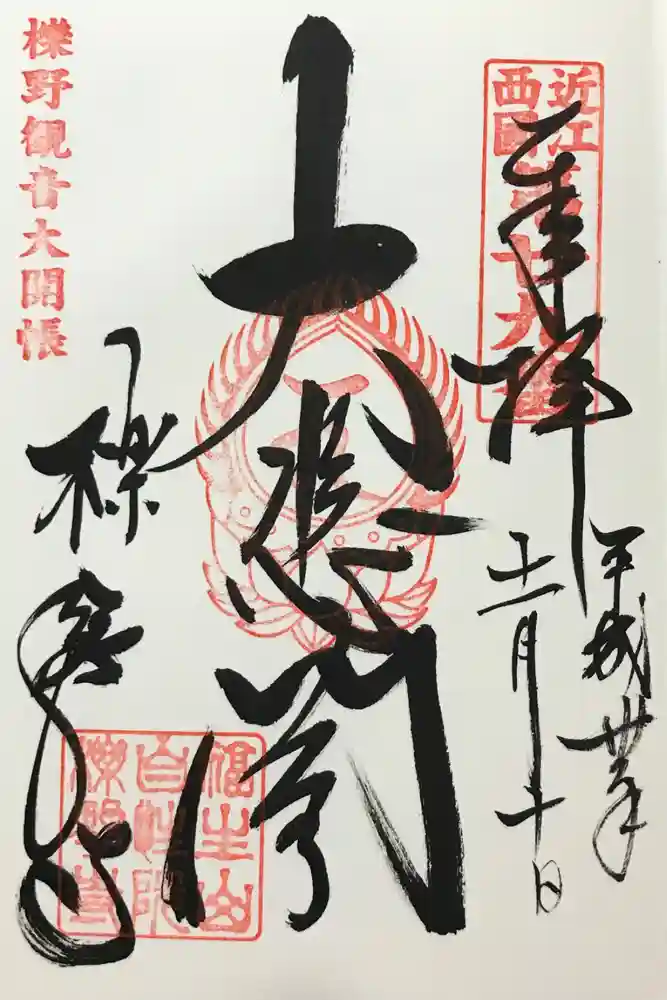 近江
西國
第廿九番
奉拝
平成卅年
十一月十日
大悲閣
櫟野観音大開帳
櫟野寺
福生山
自性院
櫟野寺